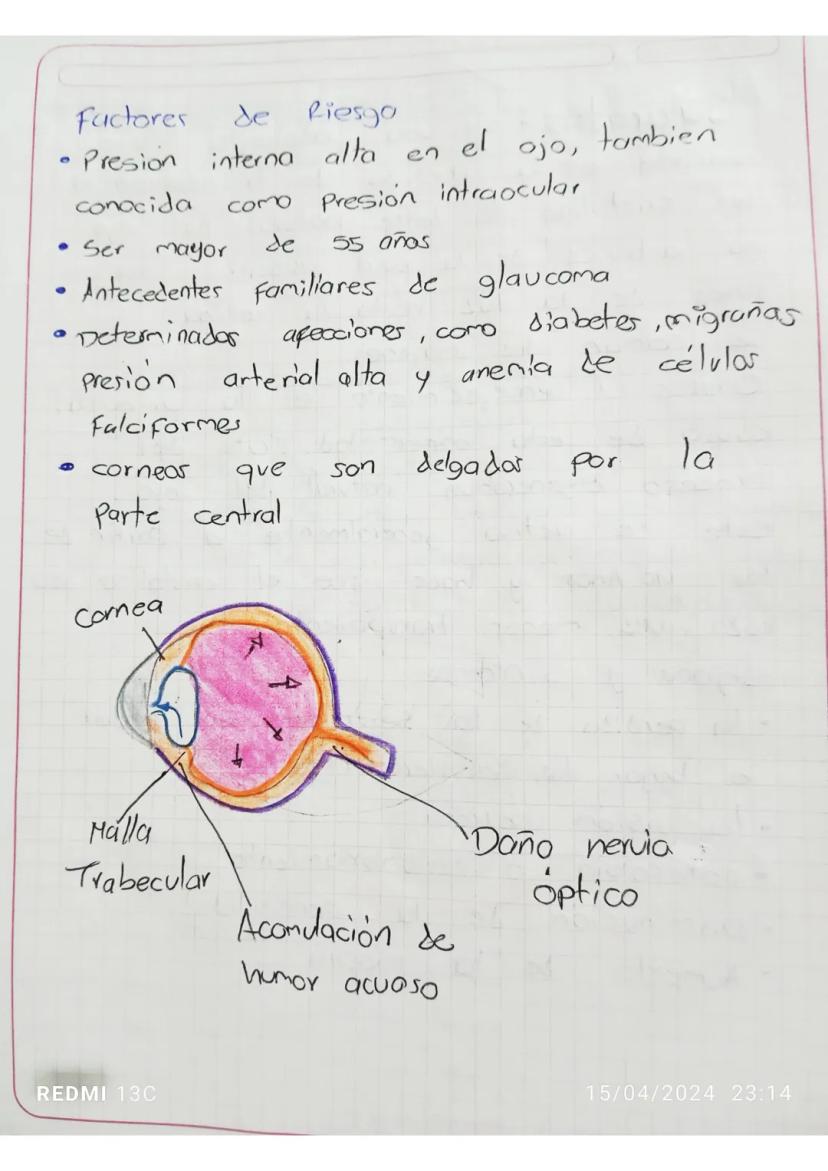 Factores de Riesgo
• Presion interna alta en el ojo, tambien
conocida como Presión intraocular
• Ser mayor de 55 años
• Antecedentes familiares de glaucoma
• Determinadas afecciones, como diabetes, migrañas
presión arterial alta y anemia de células
falciformes
• corneas que son delgadas por la
Parte central
Cornea
Málla
Trabecular
Acomulación de
humor acuoso
Daño nervia
óptico
REDMI 13C
15/04/2024 23:14